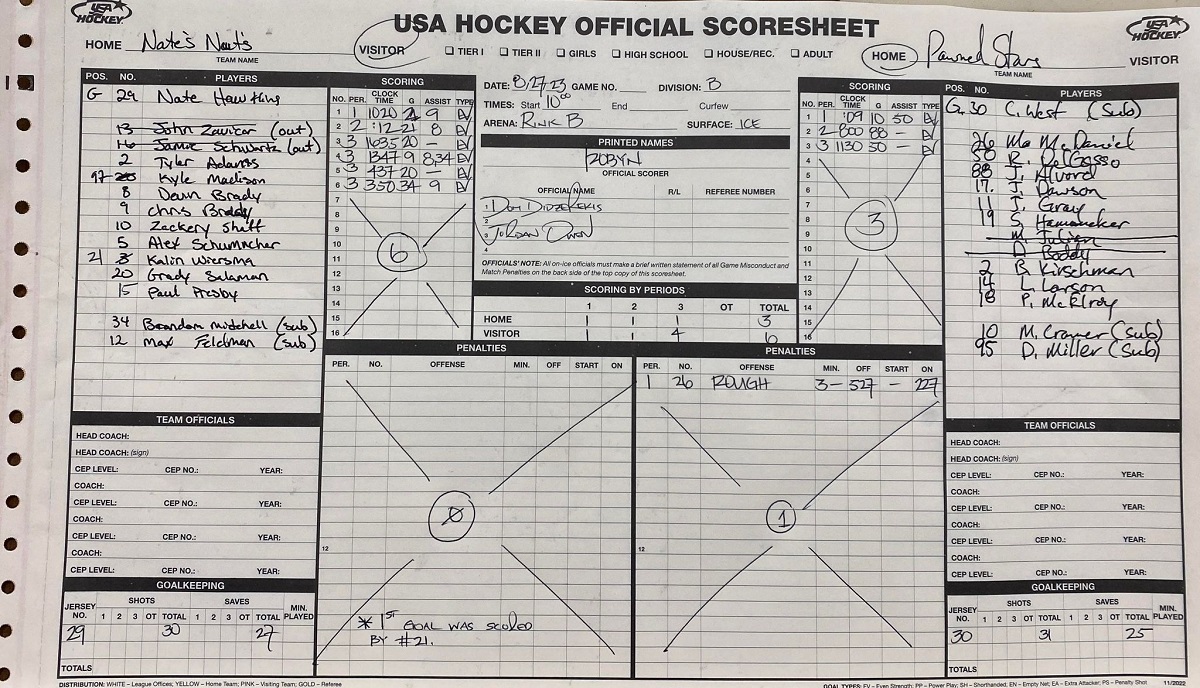 USA HOCKEY OFFICIAL SCORESHEET
USA HOCKEY
HOME Nate's Naut's VISITOR
TEAM NAME
☐ TIER I ☐ TIER II ☐ GIRLS ☐ HIGH SCHOOL ☐ HOUSE/REC. ☐ ADULT
HOME Pawned Stars VISITOR
TEAM NAME
USA HOCKEY
POS. NO. PLAYERS
G 29 Nate Hawkins
13 John Zavitar (out)
16 Jamie Schwartz (out)
2 Tyler Adams
97 Kyle Madison
8 Devin Brady
9 Chris Brady
10 Zackery Shitt
5 Alex Schumacher
21 Kalin Wiersma
20 Grady Salaman
15 Paul Presby
34 Brandon Mitchell (sub)
12 Max Feldman (sub)
SCORING
NO. PER. CLOCK TIME G ASSIST TYPE
1 1 1020 21 9 EV
2 2 :12 21 8 EV
3 3 1635 20 — EV
4 3 1347 9 8,34 EV
5 3 437 20 — EV
6 3 350 34 9 EV
7
8
9
10
11
12
13
14
15
16
6
DATE: 8/27/23 GAME NO. DIVISION: B
TIMES: Start 10:00 End Curfew
ARENA: RINK B SURFACE: ICE
PRINTED NAMES
ROBYN
OFFICIAL SCORER
OFFICIAL NAME R/L REFEREE NUMBER
1
2
3 JORDAN OWEN
4
OFFICIALS' NOTE: All on-ice officials must make a brief written statement of all Game Misconduct and
Match Penalties on the back side of the top copy of this scoresheet.
SCORING BY PERIODS
1 2 3 OT TOTAL
HOME 1 1 1 3
VISITOR 1 1 4 6
SCORING
NO. PER. CLOCK TIME G ASSIST TYPE
1 1 :09 10 50 EV
2 2 800 88 — EV
3 3 1130 50 — EV
4
5
6
7
8
9
10
11
12
13
14
15
16
3
POS. NO. PLAYERS
G 30 C. West (Sub)
26 Ma McDaniel
50 R. DelGasso
88 J. Alvord
17. J. Dawson
11 J. Gray
19 S. Hamamaker
M. Julian
D. Boddy
2 B. Kirschman
14 L. Larson
18 P. McElroy
10 M. Cramer (Sub)
95 D. Miller (Sub)
PENALTIES
PER. NO. OFFENSE MIN. OFF START ON
12
0
* 1ST GOAL WAS SCORED
BY #21.
PENALTIES
PER. NO. OFFENSE MIN. OFF START ON
1 26 ROUGH 3 — 527 — 227
12
1
TEAM OFFICIALS
HEAD COACH:
HEAD COACH: (sign)
CEP LEVEL: CEP NO.: YEAR:
COACH:
CEP LEVEL: CEP NO.: YEAR:
COACH:
CEP LEVEL: CEP NO.: YEAR:
COACH:
CEP LEVEL: CEP NO.: YEAR:
GOALKEEPING
JERSEY NO. SHOTS 1 2 3 OT TOTAL SAVES 1 2 3 OT TOTAL MIN. PLAYED
29 30 27
TOTALS
TEAM OFFICIALS
HEAD COACH:
HEAD COACH: (sign)
CEP LEVEL: CEP NO.: YEAR:
COACH:
CEP LEVEL: CEP NO.: YEAR:
COACH:
CEP LEVEL: CEP NO.: YEAR:
COACH:
CEP LEVEL: CEP NO.: YEAR:
GOALKEEPING
JERSEY NO. SHOTS 1 2 3 OT TOTAL SAVES 1 2 3 OT TOTAL MIN. PLAYED
30 31 25
TOTALS
DISTRIBUTION: WHITE – League Offices; YELLOW – Home Team; PINK – Visiting Team; GOLD – Referee
GOAL TYPES: EV – Even Strength; PP – Power Play; SH – Shorthanded; EN – Empty Net; EA – Extra Attacker; PS – Penalty Shot 11/2022